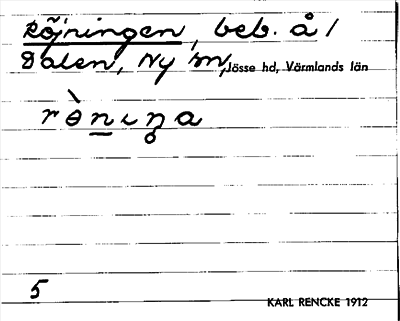 Röjningen, beb. å 1
Dalen, Ny sn, Jösse hd, Värmlands län
rɵ̀nıŋa
5
KARL RENCKE 1912